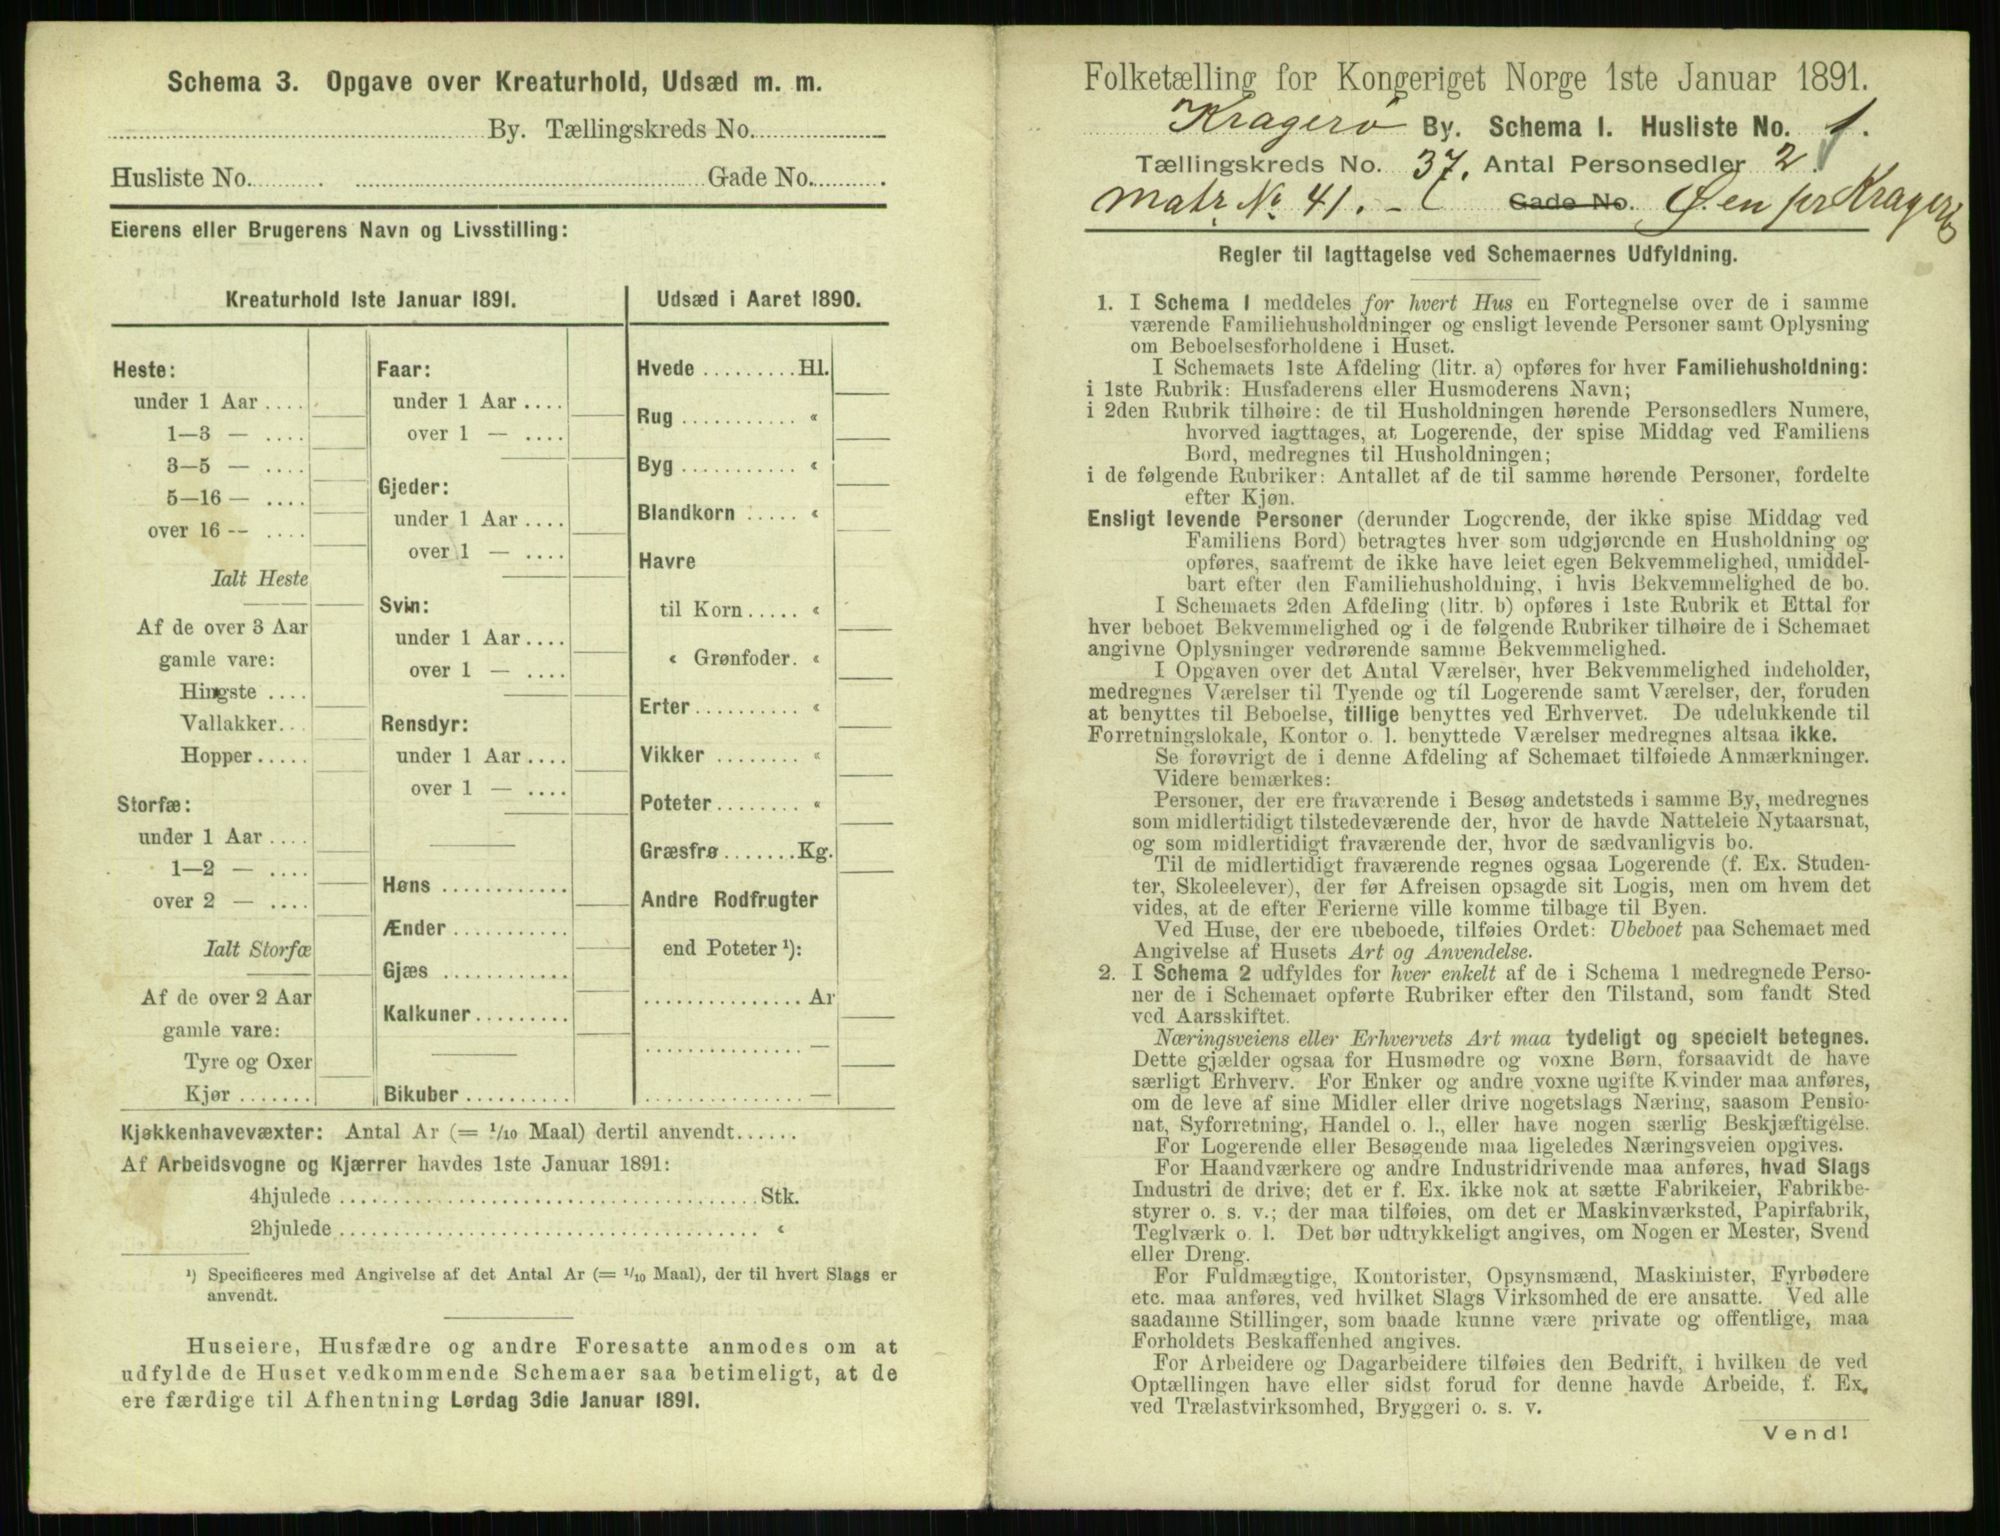 Schema 3. Opgave over Kreaturhold, Udsæd m. m.
By. Tællingskreds No.
Husliste No. Gade No.
Eierens eller Brugerens Navn og Livsstilling:
Kreaturhold 1ste Januar 1891.
Heste:
under 1 Aar ....
1—3 — ....
3—5 — ....
5—16 — ....
over 16 -- ....
Ialt Heste
Af de over 3 Aar
gamle vare:
Hingste ....
Vallakker...
Hopper.....
Storfæ:
under 1 Aar ....
1—2 — ....
over 2 — ....
Ialt Storfæ
Af de over 2 Aar
gamle vare:
Tyre og Oxer
Kjør .......
Faar:
under 1 Aar ....
over 1 — ....
Gjeder:
under 1 Aar ....
over 1 — ....
Svin:
under 1 Aar ....
over 1 — ....
Rensdyr:
under 1 Aar ....
over 1 — ....
Høns ............
Ænder ...........
Gjæs ............
Kalkuner.........
Bikuber ..........
Udsæd i Aaret 1890.
Hvede .........Hl.
Rug ........... «
Byg ........... «
Blandkorn ..... «
Havre
til Korn..... «
« Grønfoder. «
Erter.......... «
Vikker ........ «
Poteter........ «
Græsfrø.......Kg.
Andre Rodfrugter
end Poteter ¹):
............... Ar
............... —
............... —
Kjøkkenhavevæxter: Antal Ar (= 1/10 Maal) dertil anvendt......
Af Arbeidsvogne og Kjærrer havdes 1ste Januar 1891:
4hjulede ...................................... Stk.
2hjulede ...................................... «
¹) Specificeres med Angivelse af det Antal Ar (= 1/10 Maal), der til hvert Slags er
anvendt.
Huseiere, Husfædre og andre Foresatte anmodes om at
udfylde de Huset vedkommende Schemaer saa betimeligt, at de
ere færdige til Afhentning Lørdag 3die Januar 1891.
Folketælling for Kongeriget Norge 1ste Januar 1891.
Kragerø By. Schema 1. Husliste No. 1.
Tællingskreds No. 37. Antal Personsedler 2.
Matr. No. 41. - Gade No. Øen pr Kragerø
Regler til Iagttagelse ved Schemaernes Udfyldning.
1. I Schema 1 meddeles for hvert Hus en Fortegnelse over de i samme
værende Familiehusholdninger og ensligt levende Personer samt Oplysning
om Beboelsesforholdene i Huset.
I Schemaets 1ste Afdeling (litr. a) opføres for hver Familiehusholdning:
i 1ste Rubrik: Husfaderens eller Husmoderens Navn;
i 2den Rubrik tilhøire: de til Husholdningen hørende Personsedlers Numere,
hvorved iagttages, at Logerende, der spise Middag ved Familiens
Bord, medregnes til Husholdningen;
i de følgende Rubriker: Antallet af de til samme hørende Personer, fordelte
efter Kjøn.
Ensligt levende Personer (derunder Logerende, der ikke spise Middag ved
Familiens Bord) betragtes hver som udgjørende en Husholdning og
opføres, saafremt de ikke have leiet egen Bekvemmelighed, umiddel-
bart efter den Familiehusholdning, i hvis Bekvemmelighed de bo.
I Schemaets 2den Afdeling (litr. b) opføres i 1ste Rubrik et Ettal for
hver beboet Bekvemmelighed og i de følgende Rubriker tilhøire de i Schemaet
angivne Oplysninger vedrørende samme Bekvemmelighed.
I Opgaven over det Antal Værelser, hver Bekvemmelighed indeholder,
medregnes Værelser til Tyende og til Logerende samt Værelser, der, foruden
at benyttes til Beboelse, tillige benyttes ved Erhvervet. De udelukkende til
Forretningslokale, Kontor o. l. benyttede Værelser medregnes altsaa ikke.
Se forøvrigt de i denne Afdeling af Schemaet tilføiede Anmærkninger.
Videre bemærkes:
Personer, der ere fraværende i Besøg andetsteds i samme By, medregnes
som midlertidigt tilstedeværende der, hvor de havde Natteleie Nytaarsnat,
og som midlertidigt fraværende der, hvor de sædvanligvis bo.
Til de midlertidigt fraværende regnes ogsaa Logerende (f. Ex. Studen-
ter, Skoleelever), der før Afreisen opsagde sit Logis, men om hvem det
vides, at de efter Ferierne ville komme tilbage til Byen.
Ved Huse, der ere ubeboede, tilføies Ordet: Ubeboet paa Schemaet med
Angivelse af Husets Art og Anvendelse.
2. I Schema 2 udfyldes for hver enkelt af de i Schema 1 medregnede Perso-
ner de i Schemaet opførte Rubriker efter den Tilstand, som fandt Sted
ved Aarsskiftet.
Næringsveiens eller Erhvervets Art maa tydeligt og specielt betegnes.
Dette gjælder ogsaa for Husmødre og voxne Børn, forsaavidt de have
særligt Erhverv. For Enker og andre voxne ugifte Kvinder maa anføres,
om de leve af sine Midler eller drive nogetslags Næring, saasom Pensio-
nat, Syforretning, Handel o. l., eller have nogen særlig Beskjæftigelse.
For Logerende eller Besøgende maa ligeledes Næringsveien opgives.
For Haandværkere og andre Industridrivende maa anføres, hvad Slags
Industri de drive; det er f. Ex. ikke nok at sætte Fabrikeier, Fabrikbe-
styrer o. s. v.; der maa tilføies, om det er Maskinværksted, Papirfabrik,
Teglværk o. l. Det bør udtrykkeligt angives, om Nogen er Mester, Svend
eller Dreng.
For Fuldmægtige, Kontorister, Opsynsmænd, Maskinister, Fyrbødere
etc. maa anføres, ved hvilket Slags Virksomhed de ere ansatte. Ved alle
saadanne Stillinger, som baade kunne være private og offentlige, maa
Forholdets Beskaffenhed angives.
For Arbeidere og Dagarbeidere tilføies den Bedrift, i hvilken de ved
Optællingen have eller sidst forud for denne havde Arbeide, f. Ex.
ved Trælastvirksomhed, Bryggeri o. s. v.
Vend!